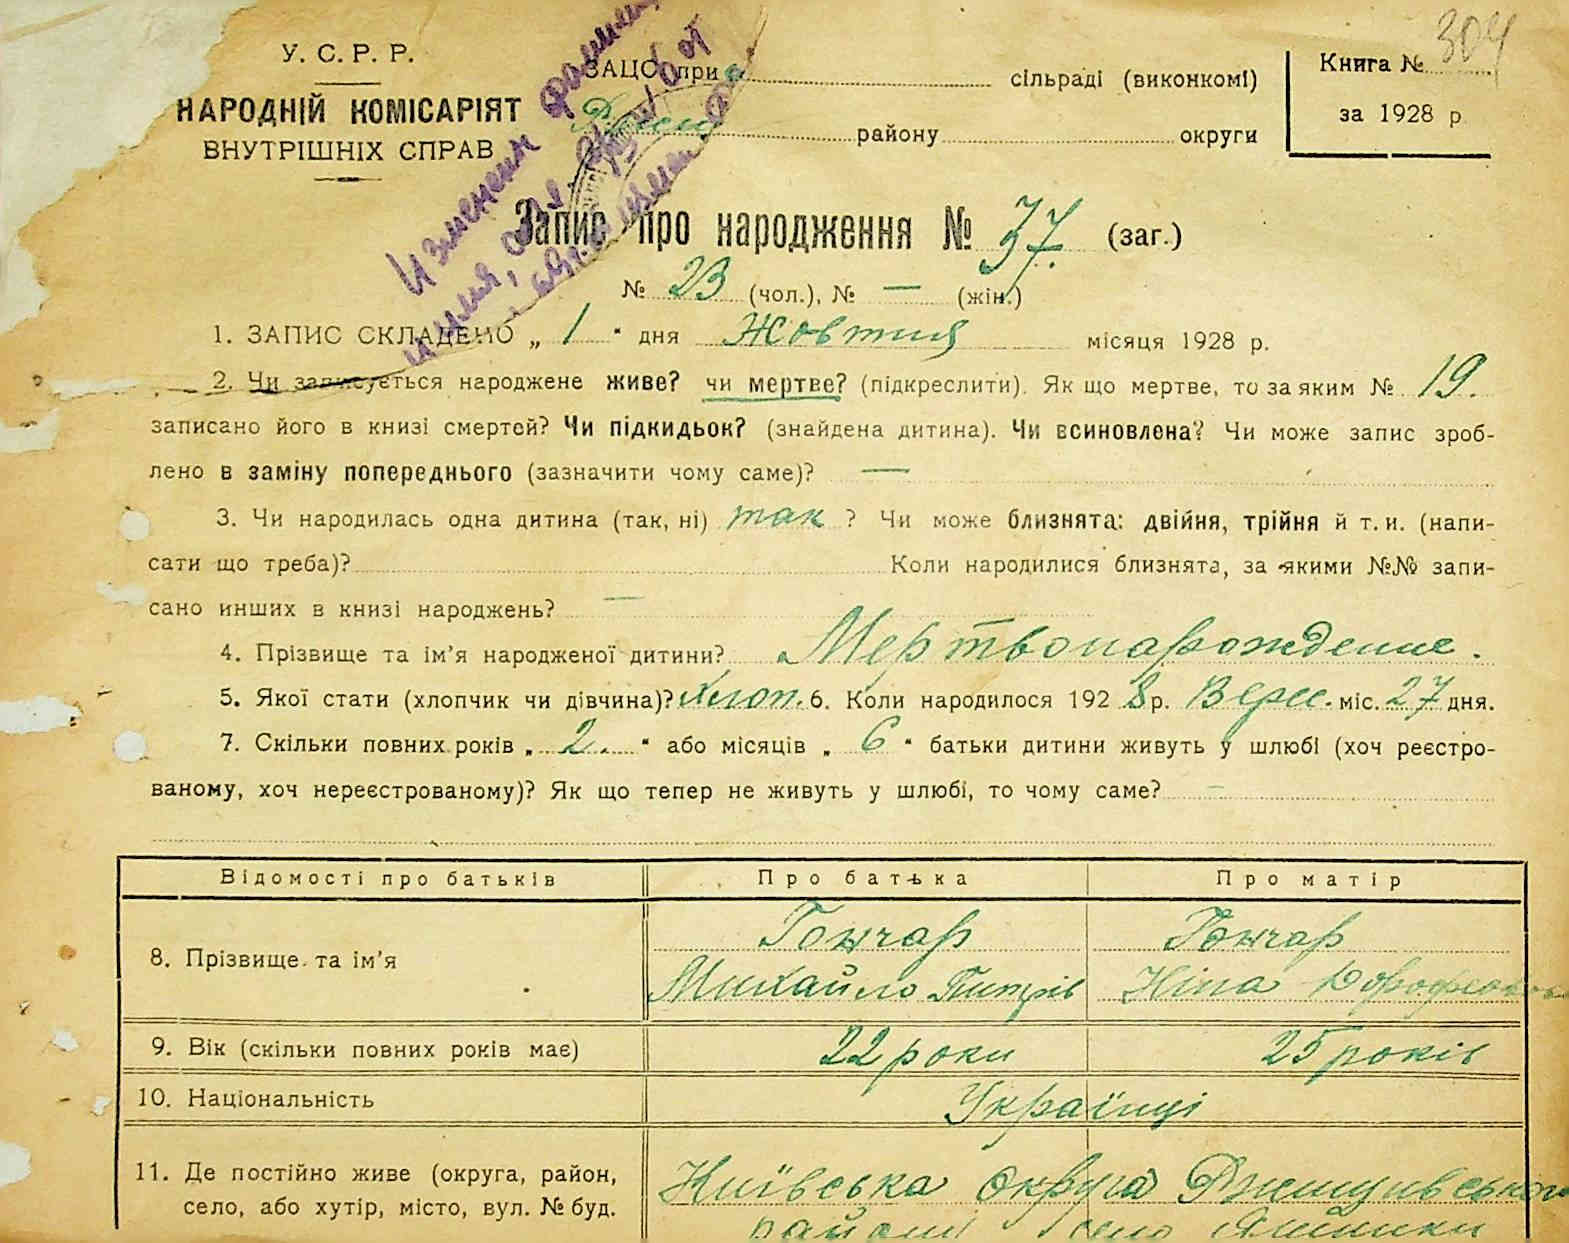 У. С. Р. Р.
НАРОДНІЙ КОМІСАРІЯТ
ВНУТРІШНІХ СПРАВ
ЗАЦС при сільраді (виконкомі)
району округи
Книга № 304
за 1928 р
Изменена фамилия
Запис про народження № 37. (заг.)
№ 23 (чол.), № — (жін.)
1. ЗАПИС СКЛАДЕНО „ 1 “ дня Жовтня місяця 1928 р.
2. Чи записується народжене живе? чи мертве? (підкреслити). Як що мертве, то за яким № 19.
записано його в книзі смертей? Чи підкидьок? (знайдена дитина). Чи всиновлена? Чи може запис зроб-
лено в заміну попереднього (зазначити чому саме)? —
3. Чи народилась одна дитина (так, ні) так ? Чи може близнята: двійня, трійня й т. и. (напи-
сати що треба)? Коли народилися близнята, за якими №№ запи-
сано инших в книзі народжень? —
4. Прізвище та ім’я народженої дитини? Мертвонарождение.
5. Якої стати (хлопчик чи дівчина)? Хлоп. 6. Коли народилося 1928 р. Верес. міс. 27 дня.
7. Скільки повних років „ 2. “ або місяців „ 6 “ батьки дитини живуть у шлюбі (хоч реєстро-
ваному, хоч нереєстрованому)? Як що тепер не живуть у шлюбі, то чому саме? —
Відомості про батьків Про батька Про матір
8. Прізвище та ім’я Гончар Гончар
Михайло Ніна
9. Вік (скільки повних років має) 22 роки 25 років
10. Національність Українці
11. Де постійно живе (округа, район, Київська округа
село, або хутір, місто, вул. № буд. село